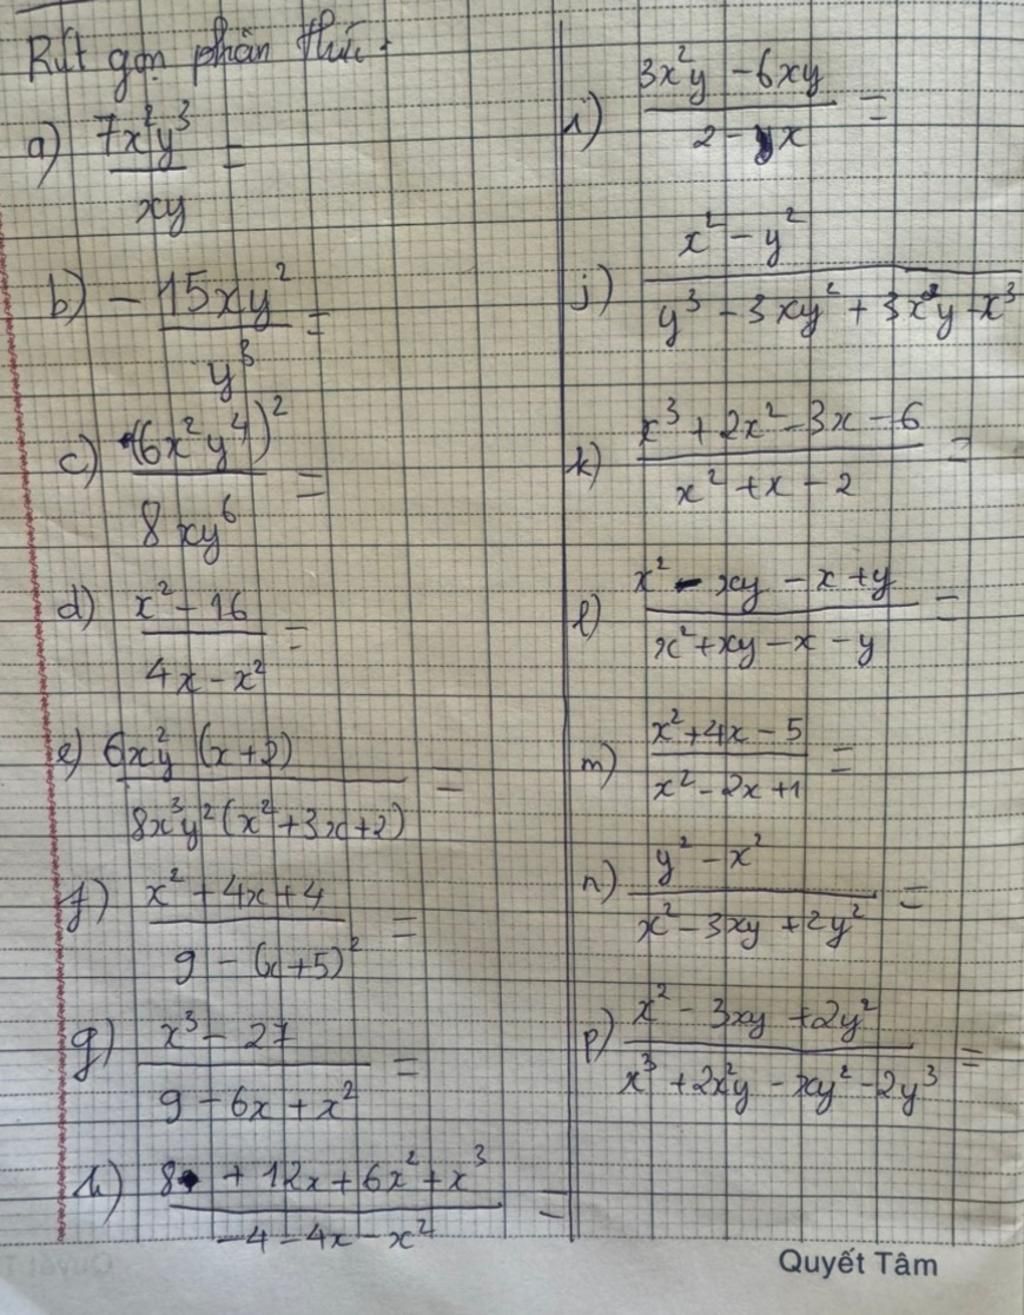 Rút gọn phân thức.
a) 7x²y³ / xy =
b) - 15xy² / y³ =
c) (6x²y⁴)² / 8xy⁶ =
d) x² - 16 / 4x - x² =
e) 6x²y (x+2) / 8x³y²(x²+3x+2) =
f) x² + 4x + 4 / 9 - (x+5)² =
g) x³ - 27 / 9 - 6x + x² =
h) 8 + 12x + 6x² + x³ / -4 - 4x - x² =
i) 3x²y - 6xy / 2 - x =
j) x² - y² / y³ - 3xy² + 3x²y - x³
k) x³ + 2x² - 3x - 6 / x² + x - 2 =
l) x² - xy - x + y / x² + xy - x - y =
m) x² + 4x - 5 / x² - 2x + 1 =
n) y² - x² / x² - 3xy + 2y² =
p) x² - 3xy + 2y² / x³ + 2x²y - xy² - 2y³ =
Quyết Tâm